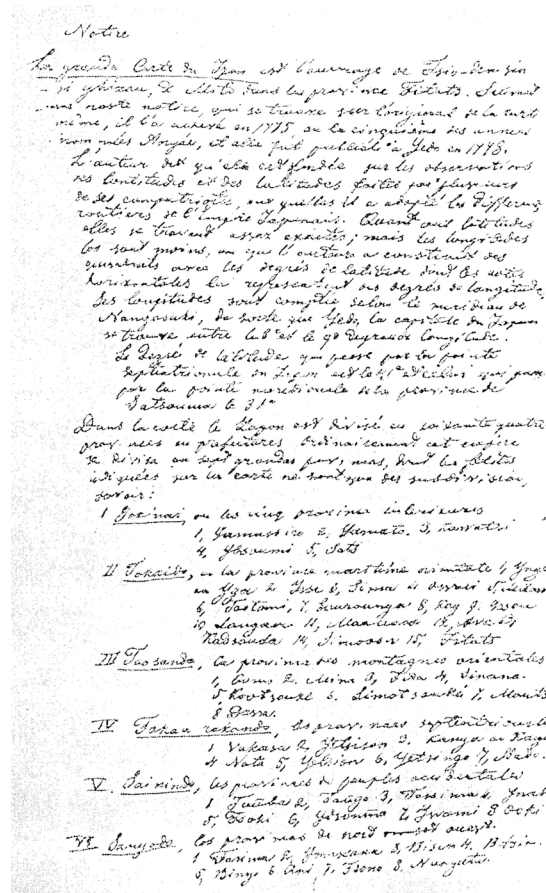 Notice
La grande Carte du Japon est l'ouvrage de
de Mito dans la province Fitats. Suivant
une note notice, qui se trouve sur l'original de la carte
même, il l'a achevé en 1775, ou la cinquième des années
nommées Anyae, et elle fut publiée à Yedo en 1779.
L'auteur dit qu'elle est fondée sur les observations
des longitudes et des latitudes faites par plusieurs
de ses compatriotes, auxquelles il a adapté les différens
routiers de l'empire Japonais. Quant aux latitudes
elles se trouvent assez exactes; mais les longitudes
les sont moins, vu que l'auteur a construit des
avec les degrés de latitude dont les cotés
horizontales lui représentent des degrés de longitude,
Les longitudes sont comptées selon le meridien de
Nangasaki, de sorte que Yedo, la capitale du Japon
se trouve entre le 8e et le 9e degré de longitude.
Le degré de latitude qui passe par la pointe
septentrionale du Japon est le 41e et celui qui passe
par la pointe meridionale de la province de
Satsouma le 31e
Dans la carte le Japon est divisé en soixante quatre
provinces ou prefectures Ordinairement cet empire
se divise en sept grandes provinces, dont les petites
indiquées sur la carte ne sont que des subdivisions,
savoir:
I Gokinai, ou les cinq provinces interieures
1, Yamassiro 2, Yamato. 3, Kawatsi
4, Idsoumi 5, Sets
II Tokaido, ou la province maritime orientale 1, Ynga
ou Yga 2 Ysse 3, Sima 4 Owari 5,
6, Tootomi, 7, Sourounga 8, Kay 9. Idsou
10 Sangami 11, Moussasi 12, Ava 13
Kadsousa 14, Simoosa 15, Fitats
III Toosando, la province des montagnes orientales
1, Oomi 2, Mino 3, Fida 4, Sinano.
5 Kootsouke 6. Simotsouke 7, Mouts
8 Dewa.
IV les provinces septentrionales
1 Vakasa 2, Yetsisen 3. Kanga ou Kaga
4 Noto 5, Yetsiou 6, Yetsingo 7, Sado.
V. les provinces de peuples occidentales
1 Tamba 2, Tango 3, Tassima 4, Ynaba
5, Fooki 6, Ydsoumo 7 Iwami 8 Ocki
VI Sanyodo, les provinces de nord ouest.
1 Farima 2, Mimasaka 3, Bisen 4. Bitsiou.
5, Bingo 6 Aki, 7, Soowo 8, Nangata.